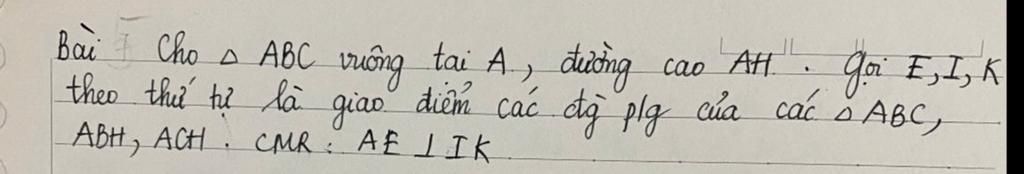 Bài Cho △ ABC vuông tai A, đường cao AH. Gọi E, I, K
theo thứ tự là giao điểm các đg p/g của các △ ABC,
ABH, ACH. CMR: AE ⊥ IK